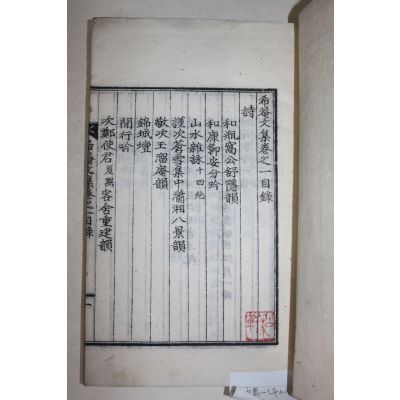 希菴文集卷之一目錄
詩
和瓶窩公舒隱韻
和康節安分吟
山水雜詠十四絶
謹次蒼雪集中瀟湘八景韻
敬次玉溜庵韻
錦城壇
閒行吟
次鄭使君夏黙客舍重建韻
希菴文集卷之一目錄
一